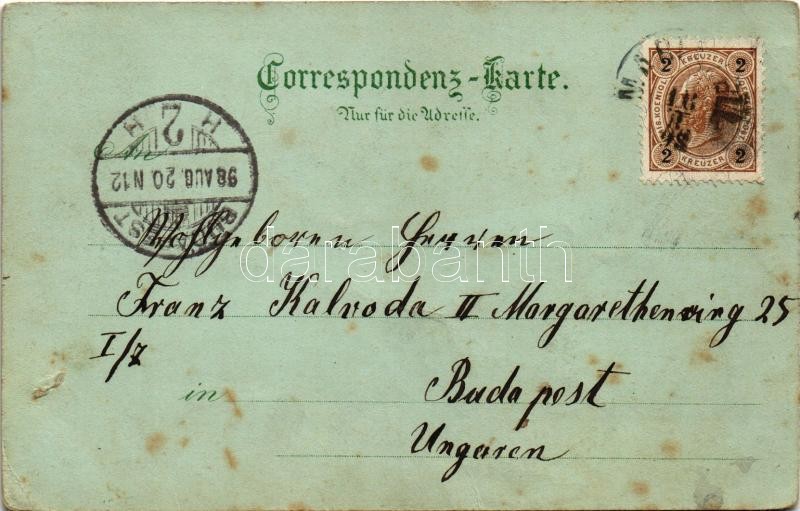 Correspondenz-Karte.
Nur für die Adresse.
2 2
KREUZER
2 KREUZER 2
H 2 H
98 AUG. 20. N12
An
Wohlgeboren Herren
darabanth
Franz Kalvoda II Margarethenring 25
I/7
in Budapest
Ungaren